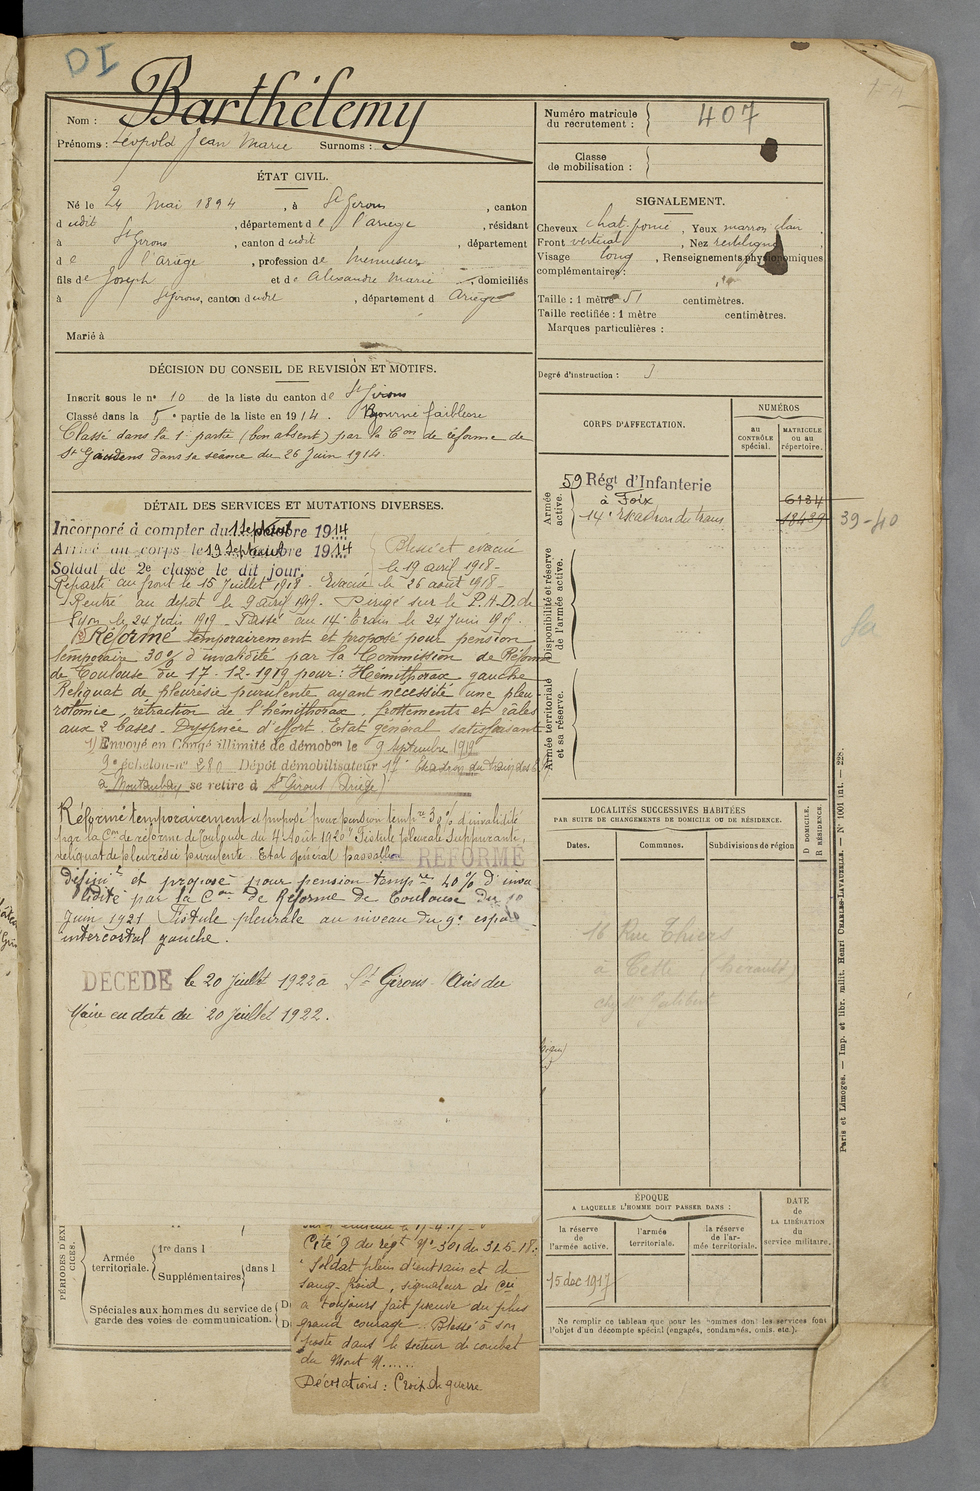 DI
Nom : Barthélemy
Prénoms : Léopold Jean Marie Surnoms :
ÉTAT CIVIL.
Né le 24 Mai 1894, à St Girons, canton
d udit, département de l'ariège, résidant
à St Girons, canton dudit, département
de l'Ariège, profession de Menuisier
fils de Joseph et de Alexandre Marie, domiciliés
à St Girons, canton dudit, département d Ariège
Marié à
DÉCISION DU CONSEIL DE REVISION ET MOTIFS.
Inscrit sous le n° 10 de la liste du canton de St Girons
Classé dans la 5e partie de la liste en 1914. Ajourné faiblesse
Classé dans la 1e partie (bon absent) par la Con de réforme de
St Gaudens dans sa séance du 26 Juin 1914.
DÉTAIL DES SERVICES ET MUTATIONS DIVERSES.
Incorporé à compter du 1 Septembre 1914
Arrivé au corps le 19 Septembre 1914
Soldat de 2e classe le dit jour.
Blessé et évacué
le 19 avril 1918 -
Réparti au front le 15 Juillet 1918 - Evacué le 26 août 1918 -
Rentré au dépôt le 9 avril 1919. Dirigé sur le P.A.D. de
Lyon le 24 Juin 1919 - Passé au 14e Etrain le 24 Juin 1919.
Réformé temporairement et proposé pour pension
temporaire 30% d'invalidité par la Commission de Réforme
de Toulouse du 17-12-1919 pour : Hémithorax gauche
Reliquat de pleurésie purulente ayant nécessité une pleu-
rotomie, rétraction de l'hémithorax. frottements et râles
aux 2 bases. Dyspnée d'effort. Etat général satisfaisant
1) Envoyé en Congé illimité de démobon le 9 septembre 1919
9e échelon n° 280 Dépôt démobilisateur 17e Escadron du train des E.
à Montauban se retire à St Girons (Ariège)
Réformé temporairement et proposé pour pension tempre 30% d'invalidité
par la Con de réforme de Toulouse du 4 Août 1920 "Fistule pleurale suppurante,
reliquat de pleurésie purulente. Etat général passable" RÉFORMÉ
définit et proposé pour pension tempre 40% d'inva
lidité par la Con de Réforme de Toulouse du 10
Juin 1921 Fistule pleurale au niveau du 9e espace
intercostal gauche.
DÉCÉDÉ le 20 Juillet 1922 à St Girons - Avis du
Maire en date du 20 Juillet 1922.
PÉRIODES D'EXERCICES.
Armée
territoriale.
1re dans l
Supplémentaires
dans l
Spéciales aux hommes du service de
garde des voies de communication.
Cité O du régt N° 301 du 31-5-18 :
"Soldat plein d'entrain et de
sang-froid, signaleur de Cie
a toujours fait preuve du plus
grand courage. Blessé à son
poste dans le secteur de combat
du Mont N......
Décorations : Croix de guerre
Numéro matricule
du recrutement : 407
Classe
de mobilisation :
SIGNALEMENT.
Cheveux chat. foncé, Yeux marron clair,
Front vertical, Nez rectiligne,
Visage long, Renseignements physionomiques
complémentaires :
Taille : 1 mètre 51 centimètres.
Taille rectifiée : 1 mètre centimètres.
Marques particulières :
Degré d'instruction : 3
CORPS D'AFFECTATION.
NUMÉROS
au
CONTRÔLE
spécial.
MATRICULE
ou au
répertoire.
Armée
active.
59 Régt d'Infanterie
à Foix
6184
14e Escadron du train
18489
39-40
Disponibilité et réserve
de l'armée active.
Armée territoriale
et sa réserve.
LOCALITÉS SUCCESSIVES HABITÉES
PAR SUITE DE CHANGEMENTS DE DOMICILE OU DE RÉSIDENCE.
D DOMICILE.
R RÉSIDENCE.
Dates.
Communes.
Subdivisions de région
16 Rue Thiers
à Cette (Hérault)
ÉPOQUE
A LAQUELLE L'HOMME DOIT PASSER DANS :
la réserve
de
l'armée active.
l'armée
territoriale.
la réserve
de l'ar-
mée territoriale.
DATE
de
LA LIBÉRATION
du
service militaire.
15 dec 1917
Ne remplir ce tableau que pour les hommes dont les services font
l'objet d'un décompte spécial (engagés, condamnés, omis, etc.).
Paris et Limoges. — Imp. et libr. milit. Henri CHARLES-LAVAUZELLE. — N° 1001 int. — 228.